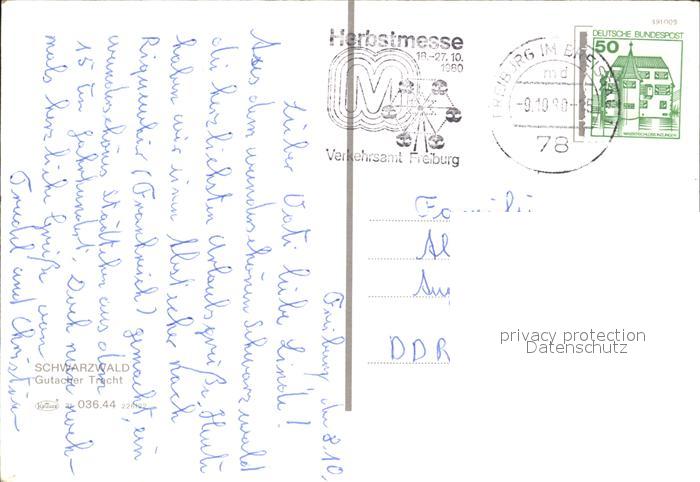 191009
DEUTSCHE BUNDESPOST
50
WASSERSCHLOSS INZLINGEN
Herbstmesse
18.-27.10.
1980
M
Verkehrsamt Freiburg
FREIBURG IM BREISGAU
md
-9.10.80-15
78
Freiburg, den 8.10.
Lieber Vati, liebe Linde!
Aus dem wunderschönen Schwarzwald
die herzlichsten Urlaubsgrüße. Heute
haben wir einen Abstecher nach
(Frankreich) gemacht, ein
wunderschönes Städtchen aus dem
15. Jahrhundert. Doch nun noch-
mals herzliche Grüße von
Trudel und Christian
Familie
Al
Aug
DDR
privacy protection
Datenschutz
SCHWARZWALD
Gutacher Tracht
Krüger 036.44